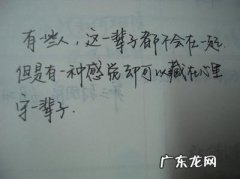 有些人，这一辈子都不会在一起
但是有一种感觉却可以藏在心里
守一辈子.
广东龙网